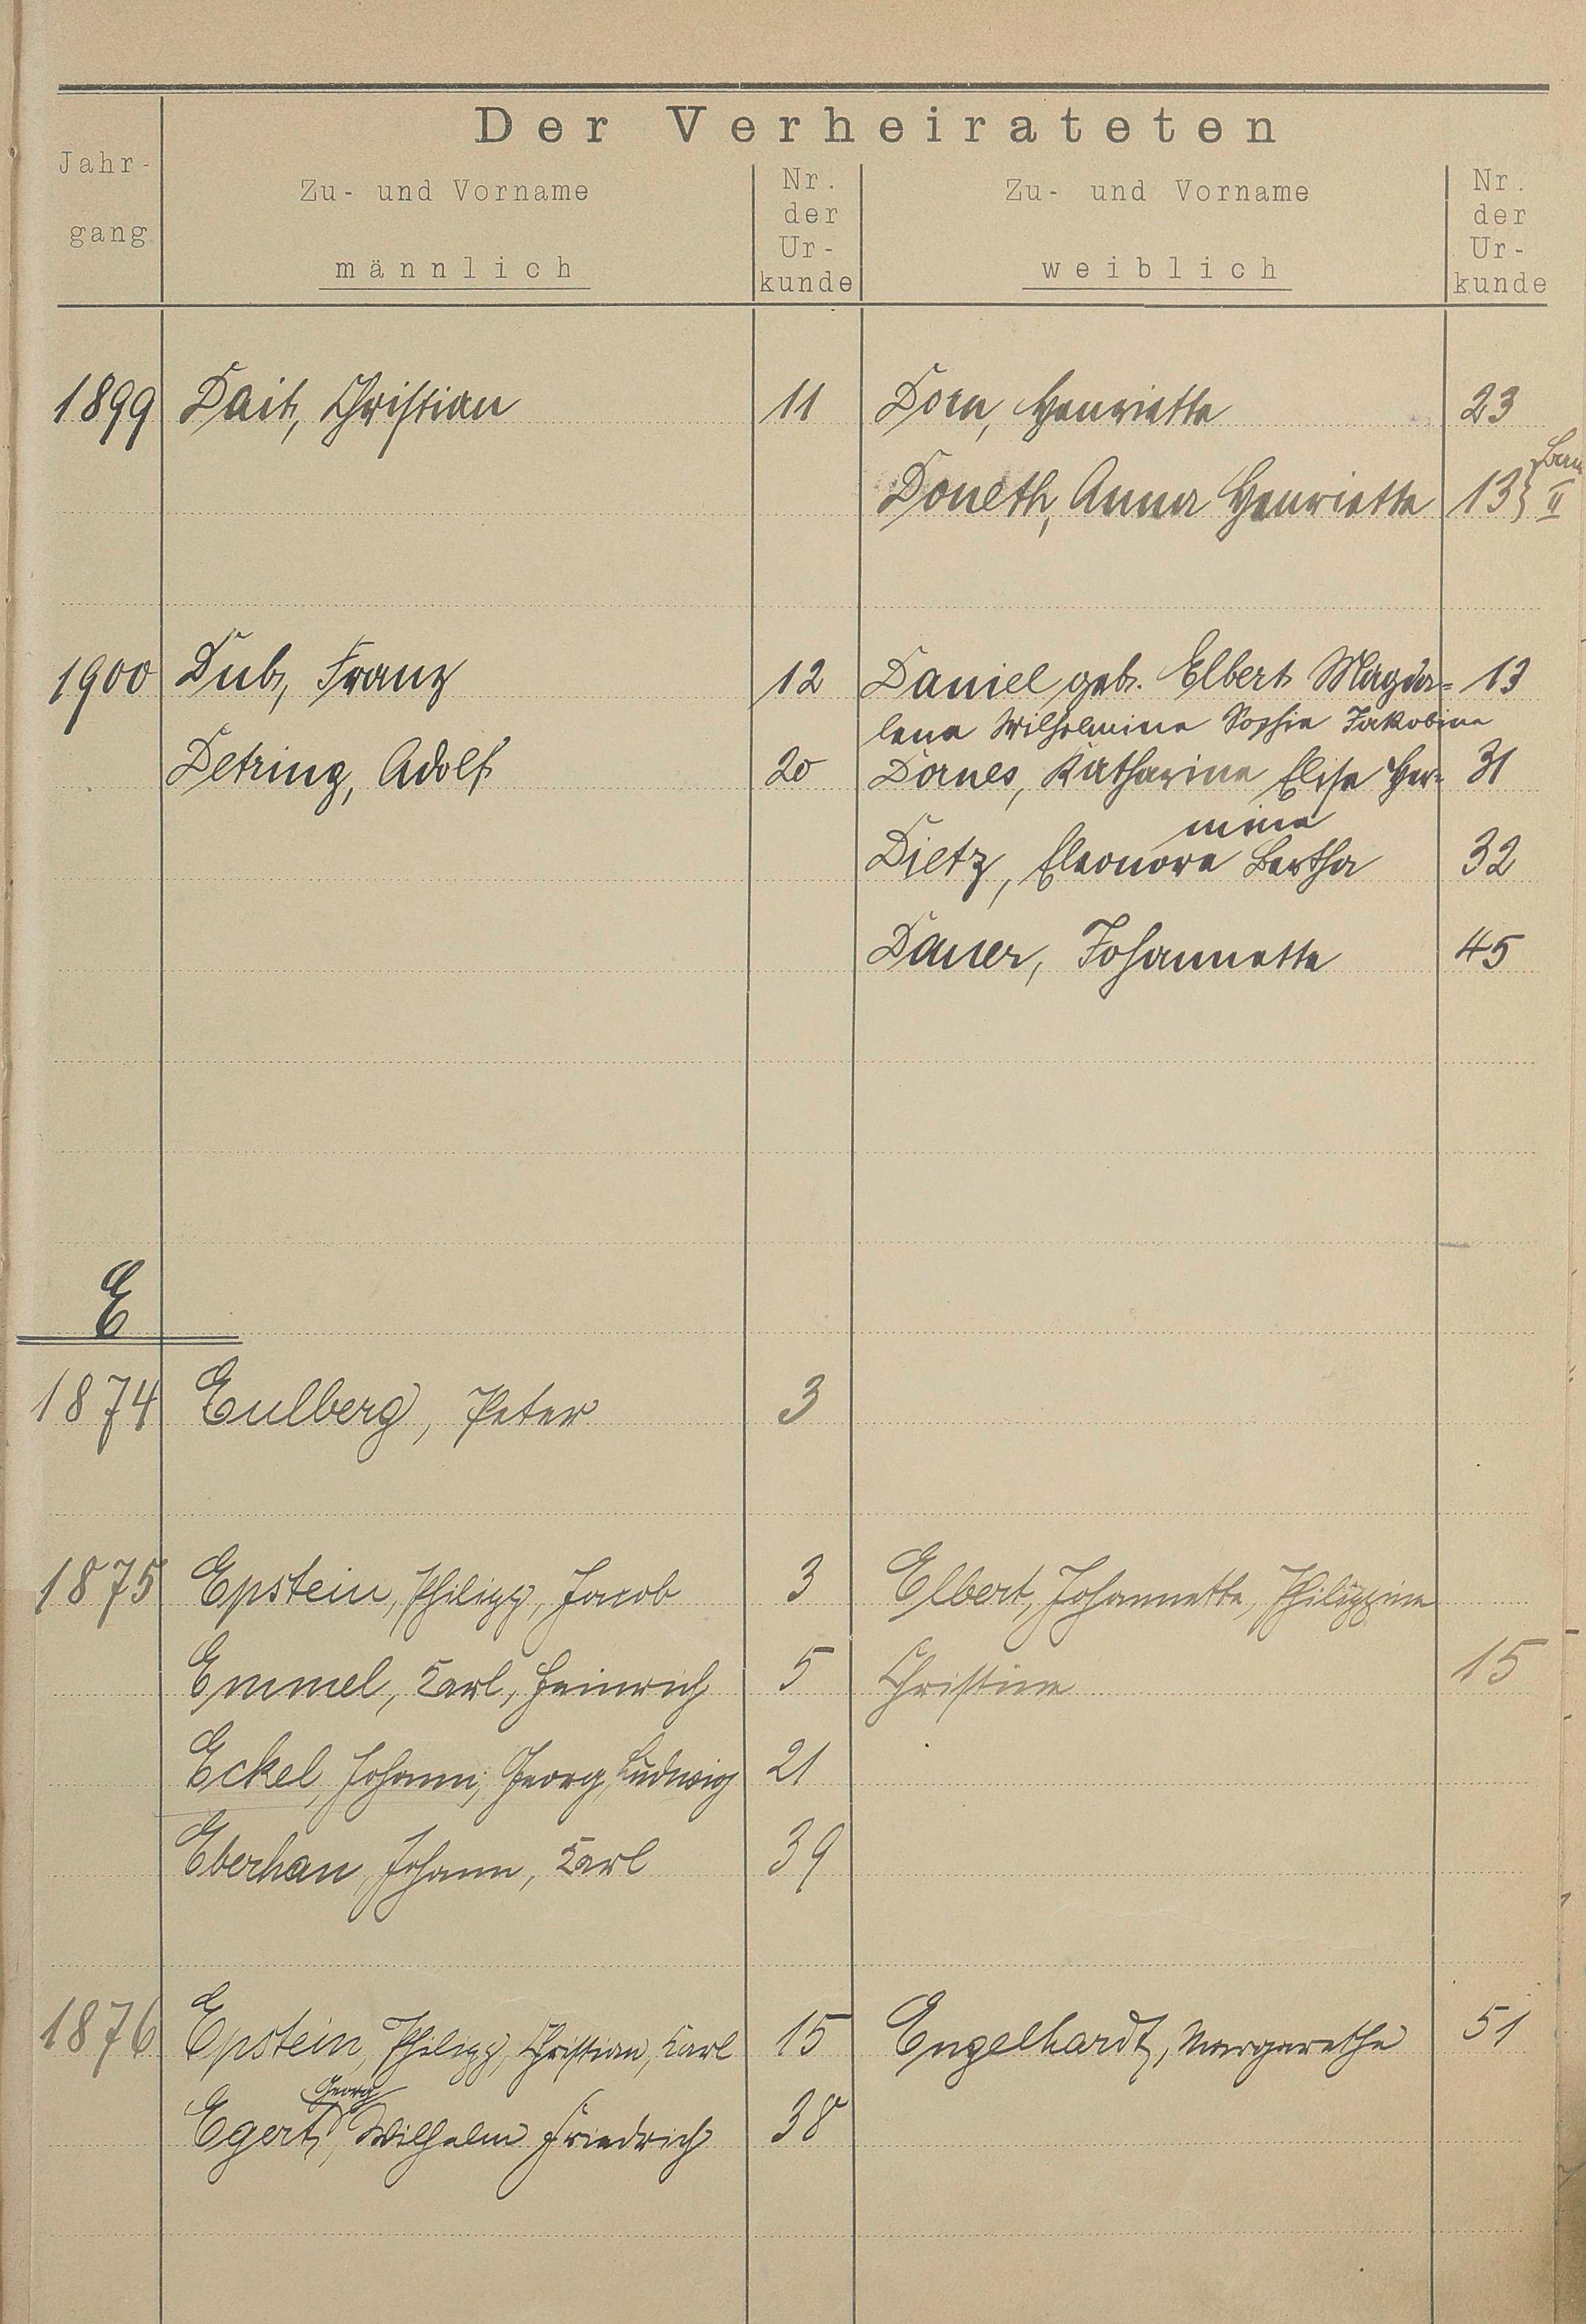 Der Verheirateten
Jahr-
gang
Zu- und Vorname
männlich
Nr.
der
Ur-
kunde
Zu- und Vorname
weiblich
Nr.
der
Ur-
kunde
1899 Dait, Christian 11 Dorn, Henriette 23
Doneth, Anna Henriette 13} II
1900 Dub, Franz 12 Daniel geb. Elbert Magda= 13
lena Wilhelmine Sophie Jakobine
Detring, Adolf 20 Dornes, Katharine Elise Her= 31
mine
Dietz, Eleonore Bertha 32
Dauer, Johannette 45
E
1874 Eulberg, Peter 3
1875 Epstein, Philipp, Jacob 3 Elbert, Johannette, Philippine
Emmel, Karl, Heinrich 5 Christine 15
Eckel, Johann, Georg, Ludwig 21
Eberhan, Johann, Karl 39
1876 Epstein, Philipp, Christian, Karl 15 Engelhardt, Margarethe 51
Georg
Egert, Wilhelm Friedrich 38